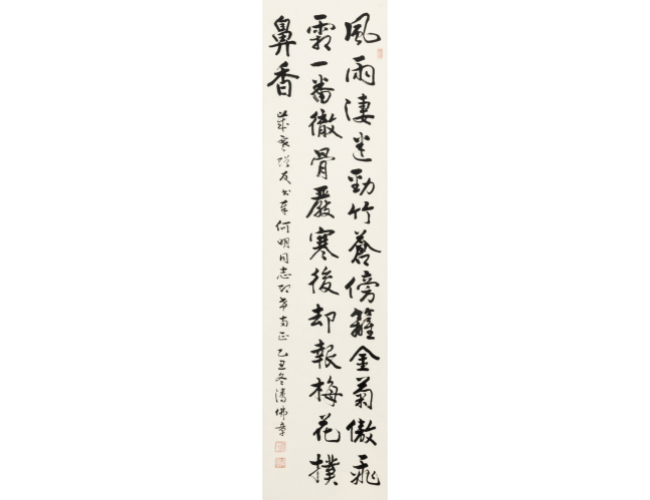 風雨淒迷勁竹蒼傍籬金菊傲飛
霜一番徹骨嚴寒後却報梅花撲
鼻香
歲寒 友 何明同志 正 乙丑冬